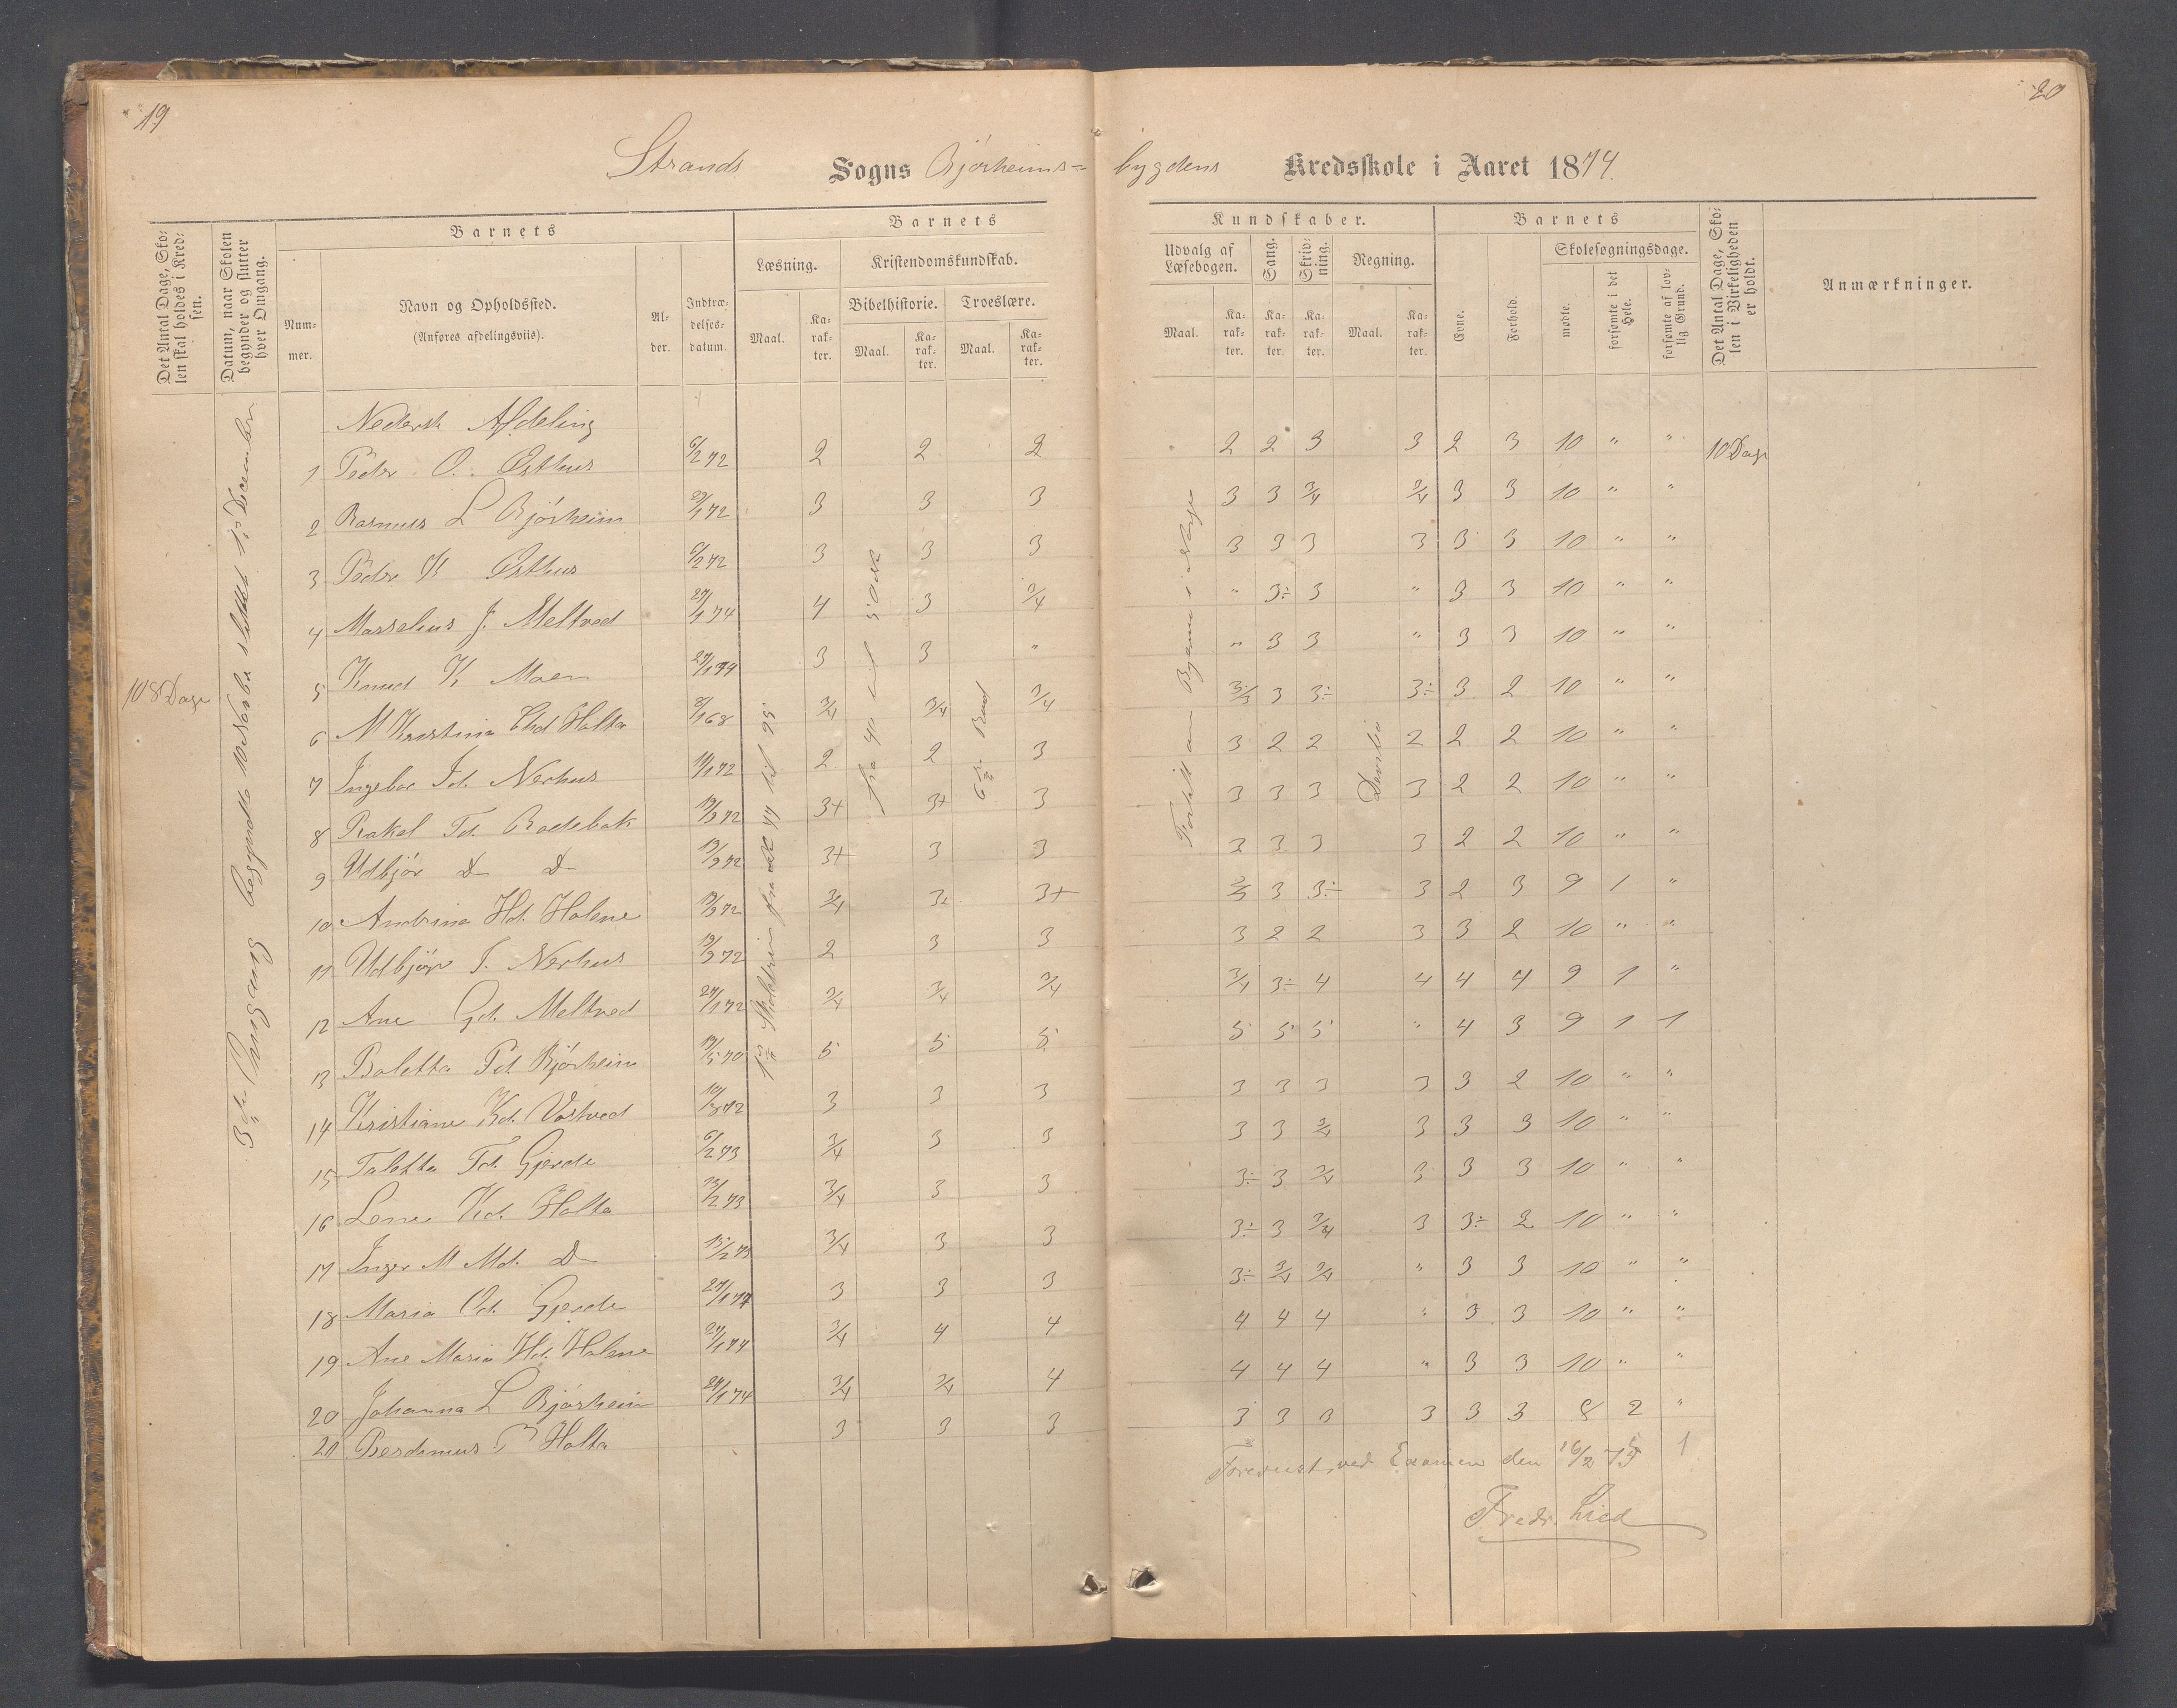 19
20
Strands Sogns Bjørheims= bygdens Kredsskole i Aaret 1874.
Det Antal Dage, Skolen skal holdes i Kredsen.
Datum, naar Skolen begynder og slutter hver Omgang.
Barnets
Nummer.
Navn og Opholdssted.
(Anføres afdelingsviis).
Alder.
Indtrædelsesdatum.
Barnets
Læsning.
Kristendomskundskab.
Bibelhistorie.
Troeslære.
Maal.
Karakter.
Maal.
Karakter.
Maal.
Karakter.
Kundskaber.
Udvalg af Læsebogen.
Sang.
Skrivning.
Regning.
Maal.
Karakter.
Karakter.
Karakter.
Maal.
Karakter.
Barnets
Evne.
Forhold.
Skolesøgningsdage.
mødte.
forsømte i det Hele.
forsømte af lovlig Grund.
Det Antal Dage, Skolen i Virkeligheden er holdt.
Anmærkninger.
108 Dage
3die Omgang begyndte 10 Novbr sluttet 1ste December
Nederste Afdeling
1 Peder O. Østhus 6/2 72 2 2 2 2 2 3 3 2 3 10 " " 10 Dage
2 Rasmus L Bjørheim 29/1 72 3 3 3 3 3 3/4 3/4 3 3 10 " "
3 Peder K Østhus 6/2 72 3 3 3 3 3 3 3 3 3 10 " "
4 Masselius J. Meltved 27/1 74 4 3 3/4 " 3÷ 3 " 3 3 10 " "
5 Knud K Moen 27/1 74 3 3 " " 3 3 " 3 3 10 " "
6 M Kristina Chd Holta 8/1 68 3/4 3/4 3/4 3/4 3 3÷ 3÷ 3 2 10 " "
7 Ingebor Jd. Nerhus 11/1 72 2 2 3 3 2 2 2 2 2 10 " "
8 Rakel Td. Bodebak 19/3 72 3+ 3+ 3 3 3 3 3 2 2 10 " "
9 Udbjør D D 19/3 72 3+ 3 3 3 3 3 3 2 2 10 " "
10 Andrina Hd. Holene 19/3 72 3/4 3+ 3+ 2/3 3 3÷ 3 2 3 9 1 "
11 Udbjør J. Nerhus 19/3 72 2 3 3 3 2 2 3 3 2 10 " "
12 Ane Gd. Meltved 27/1 72 3/4 3/4 3/4 3/4 3÷ 4 4 4 4 9 1 "
13 Boletta Pd Bjørheim 19/5 70 5 5 5 5 5 5 " 4 3 9 1 1
14 Kristiane Kd. Vostved 10/3 72 3 3 3 3 3 3 3 3 2 10 " "
15 Taletta Td. Gjerde 6/2 73 3/4 3 3 3 3 3/4 3 3 3 10 " "
16 Lene Kd. Holta 13/2 73 3/4 3 3 3÷ 3 3/4 3 3 3 10 " "
17 Inger M Md. D 13/2 73 3/4 3 3 3÷ 3 3/4 3 3÷ 2 10 " "
18 Maria Od. Gjerde 27/1 74 3 3 3 3÷ 3/4 3/4 " 3 3 10 " "
19 Ane Maria Hd. Holene 27/1 74 3/4 4 4 4 4 4 " 3 3 10 " "
20 Johanna L Bjørheim 27/1 74 3/4 3/4 4 4 4 4 " 3 3 10 " "
21 Berdinus T Holta 3 3 3 3 3 3 3 3 3 8 2 "
fra 40 til
Forevist ved Examen den 16/2 75 1
Fredr. Lied